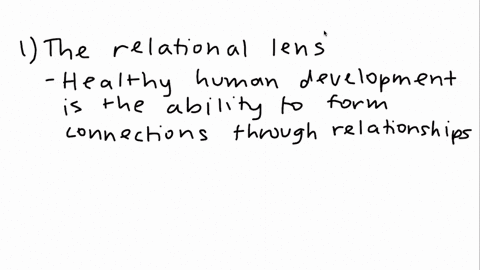 1) The relational lens
- Healthy human development
is the ability to form
connections through relationships